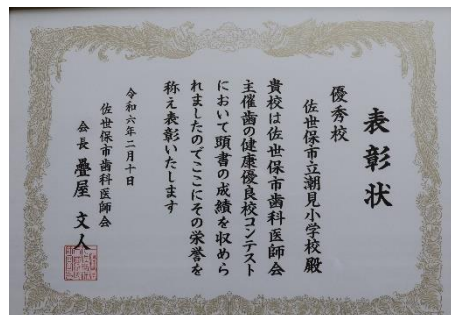 表彰状
優秀校
佐世保市立潮見小学校殿
貴校は佐世保市歯科医師会
主催歯の健康優良校コンテスト
において頭書の成績を収めら
れましたのでここにその栄誉を
称え表彰いたします
令和六年二月十日
佐世保市歯科医師会
会長 疊屋文人